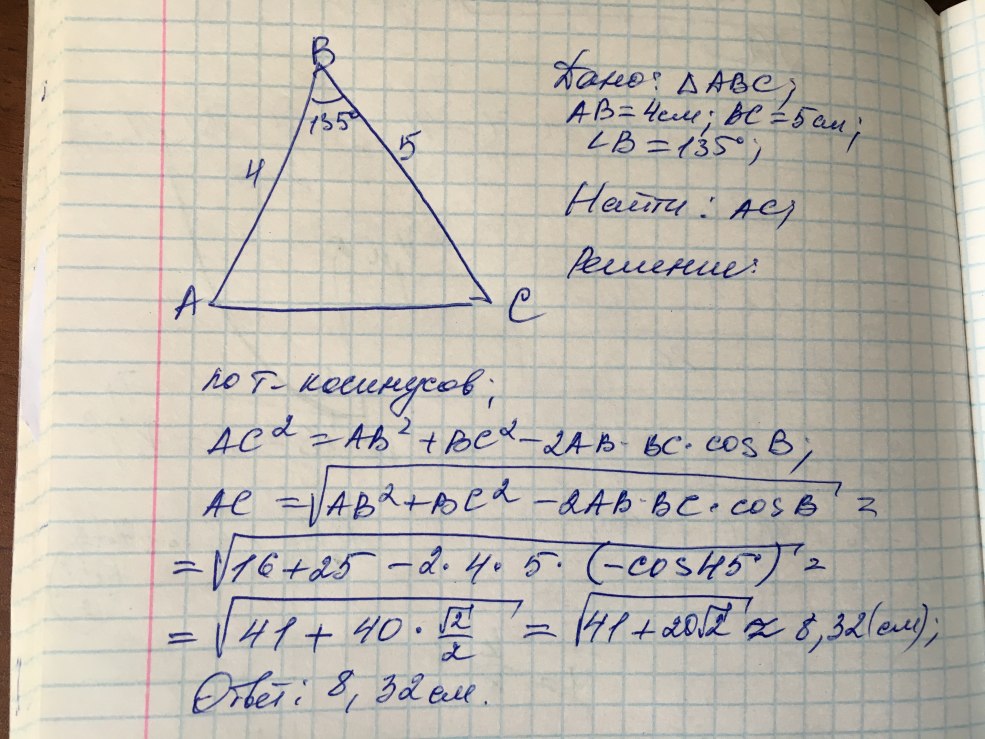 B
135°
4
5
A
C
Дано: △ABC;
AB=4см; BC=5см;
∠B=135°;
Найти: AC;
Решение:
по т-косинусов;
AC²=AB²+BC²-2AB·BC·cosB;
AC=√(AB²+BC²-2AB·BC·cosB)=
=√(16+25-2·4·5·(-cos45°))=
=√(41+40·√2/2)=√(41+20√2)≈8,32(см);
Ответ: 8,32см.